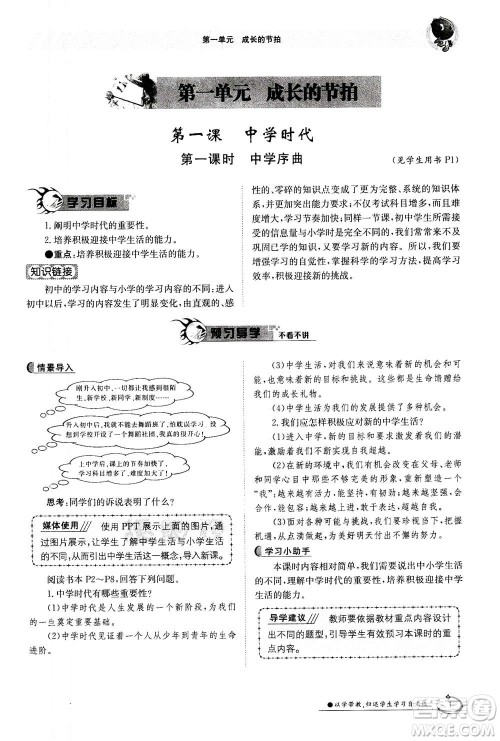 第一单元 成长的节拍
第一单元 成长的节拍
第一课 中学时代
第一课时 中学序曲
(见学生用书P1)
学习目标
1.阐明中学时代的重要性。
2.培养积极迎接中学生活的能力。
●重点:培养积极迎接中学生活的能力。
知识链接
初中的学习内容与小学的学习内容具有不同。进
入初中以后,学习的内容发生了明显变化,由直观的、感
性的、零碎的知识点变成了更为完整、系统的知识体
系,并且更加突出能力要求。考试科目增多,而且难
度增大,学习节奏加快;同样一节课,初中学生所要学
习的内容与小学时是完全不同的,初中学习还有及时
巩固已学的知识的要求。初中阶段的学习,要求我们
增强学习的自觉性,掌握科学的学习方法,提高学习效
率,积极迎接新的挑战。
预习导学
不看不讲
情景导入
刚升入初中,一切都让我感到
新鲜,新学校,新同学,新科目……
升入初中,我就不能去舞蹈班了,
但是学校开设的舞蹈社团,可满足
我的爱好。
上中学后,课上节奏加快了,
科目增多了,难度大了!
思考:同学们的诉说表明了什么?
媒体使用 使用PPT展示上面的图片,通
过图片展示,让学生了解中学生活与小学生活
的不同,从而激发学生的兴趣,导入新课。
阅读书本P2~P8,回答下列问题。
1.中学时代有哪些重要性?
(1)中学时代是人生发展的一个新阶段,可以为我们
的一生奠定重要基础。
(2)中学时代见证着一个人从少年到青年的生命
进阶。
(3)中学生活,对我们来说意味着新的机会和可能,
也意味着新的目标和要求,这些都是生命馈赠给我们的
成长礼物。
(4)中学生活为我们的发展提供了多种机会。
2.我们应怎样积极应对新的中学生活?
(1)进入中学,新的目标和要求激发着我们的潜能,
激励着我们不断实现自我超越。
(2)在新的环境中,我们有机会改变自己的不足。老师
和同学心目中的形象可以重新塑造,我们渴望有一个全新的
“我”:越来越有活力,越来越爱学习,越来越有智慧……
(3)我们珍视当下,把握机遇,从点点滴滴做起,就可
以不断丰富自己,为美好明天付出不懈的努力。
学习小助手
本课时内容相对简单,我们可以结合中小学生活的不
同,理解中学时代的重要性,思考如何适应新的学习生活。
导学建议 教师要依据教材重点内容设
计出不同的题型,引导学生有效预习本课时的重点
内容。
●以学带教,归还学生学习自主权
1